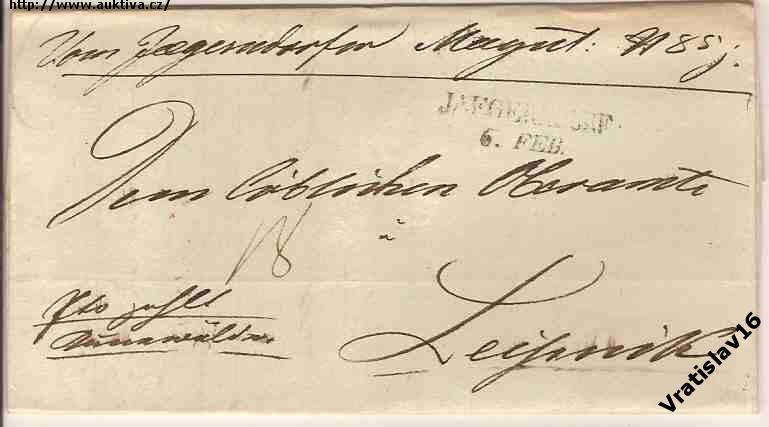 http://www.auktiva.cz/
Vom Jaegerndorfer Magist: N 85 j.
JAEGERNDORF
6. FEB.
Dem löblichen Oberamte
à
Leipnik
Pto zahlt
Vratislav16